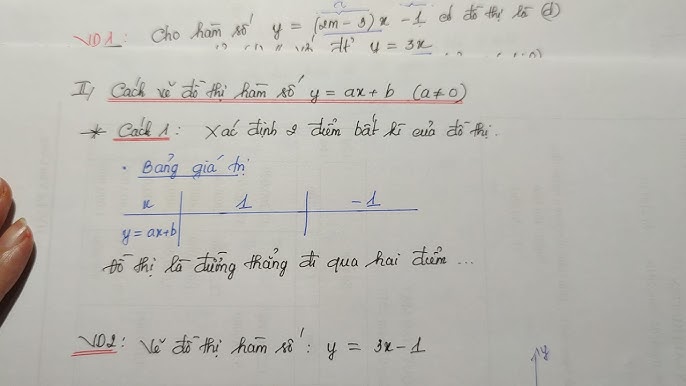 VD1: Cho hàm số y = (2m - 3)x - 1 có đồ thị là (d)
đt y = 3x
II, Cách vẽ đồ thị hàm số y = ax + b (a ≠ 0)
* Cách 1: Xác định 2 điểm bất kì của đồ thị.
• Bảng giá trị
x 1 -1
y = ax+b
Đồ thị là đường thẳng đi qua hai điểm ...
VD2: Vẽ đồ thị hàm số: y = 3x - 1
y